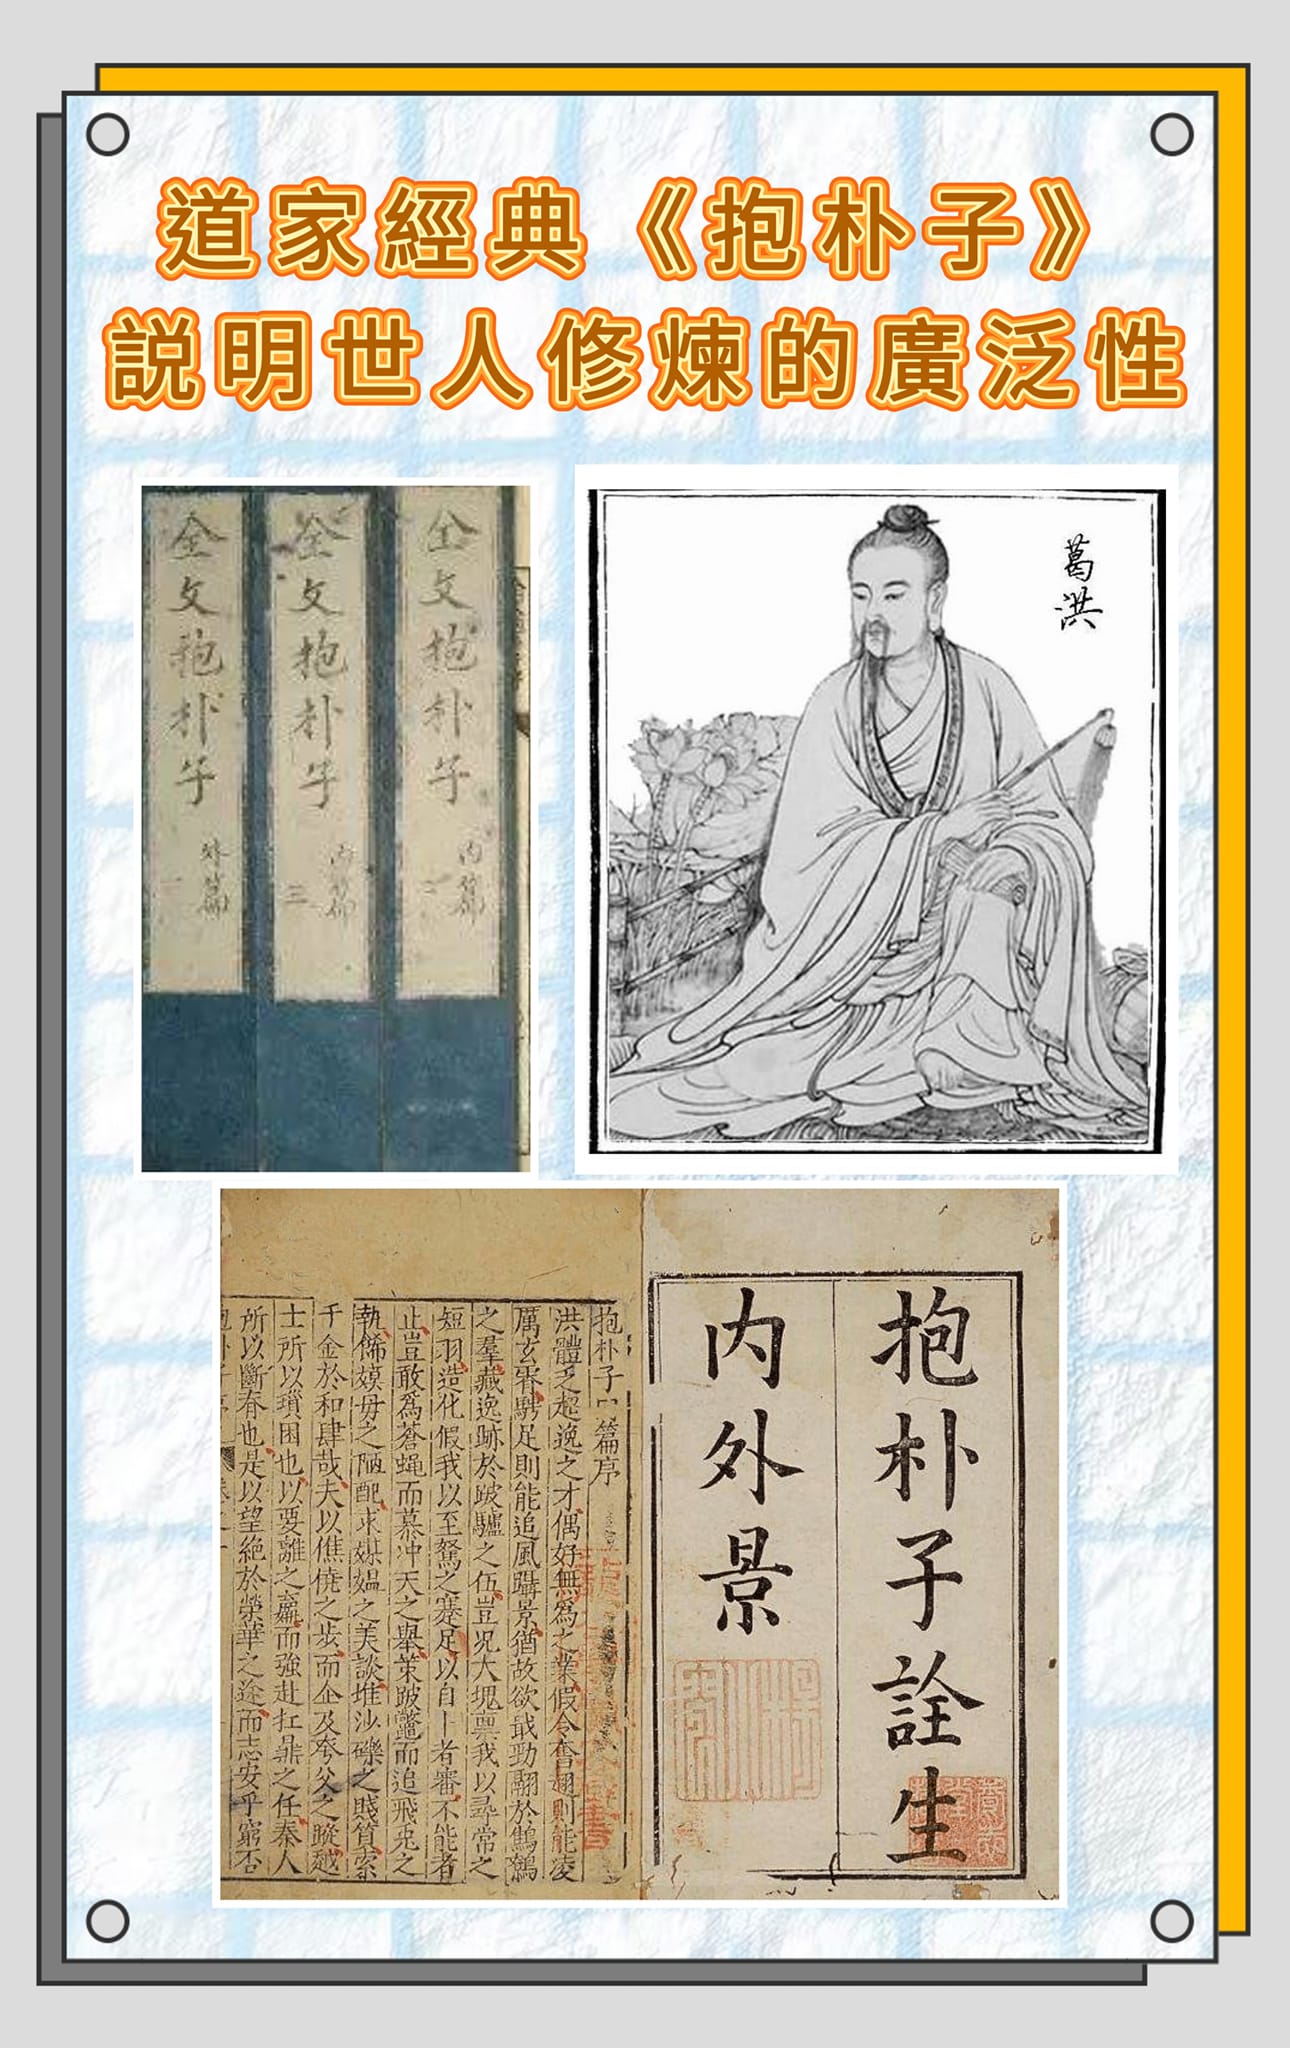 道家經典《抱朴子》
説明世人修煉的廣泛性
全文抱朴子 内篇 二
全文抱朴子 内篇 三
全文抱朴子 外篇 一
葛洪
抱朴子詮生
内外景
抱朴子 篇序
洪體乏超逸之才偶好無爲之業假令奮翅則能凌
厲玄霄騁足則能追風躡景猶故欲戢勁翮於鷦鷯
之羣藏逸跡於跛驢之伍豈況大塊稟我以尋常之
短羽造化假我以至駑之蹇足以自卜者審不能者
止豈敢爲蒼蝇而慕冲天之舉策跛鼈而追飛兎之
軌飾嫫母之陋配求媒媪之美談堆沙礫之賤質索
千金於和肆哉夫以僬僥之步而企及夸父之蹤越
士所以瑣困也以要離之羸而強赴扛鼎之任秦人
所以斷春也是以望絶於榮華之途而志安乎窮否